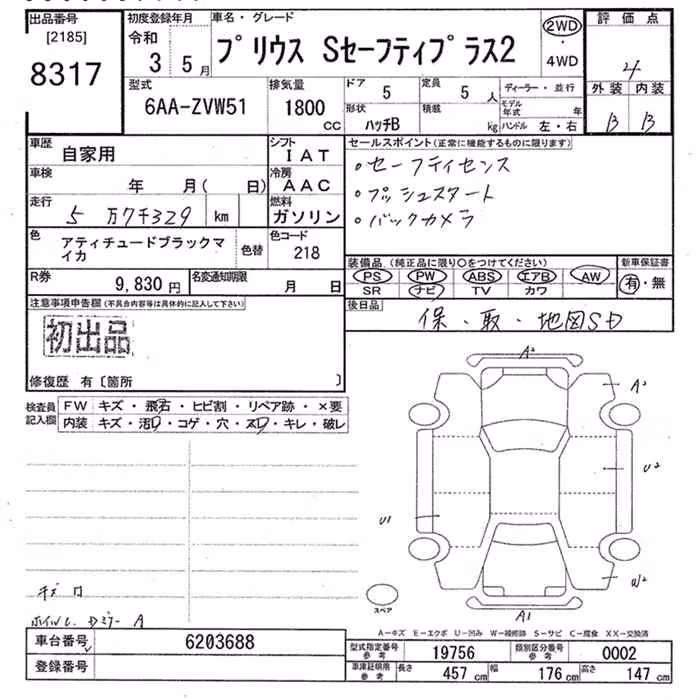 出品番号
[2185]
8317
初度登録年月
令和
3 5月
車名・グレード
プリウス Sセーフティプラス2
2WD
・
4WD
評価点
4
外装 内装
B B
型式
6AA-ZVW51
排気量
1800
CC
ドア
5
定員
5 人
形状
ハッチB
積載
kg
ディーラー・並行
モデル年式 年
ハンドル 左・右
車歴
自家用
シフト
IAT
車検
年 月( 日)
冷房
AAC
走行
5万7千329 km
燃料
ガソリン
色
アティチュードブラックマイカ
色替
色コード
218
R券
9,830円
名変通知期限
月 日
セールスポイント(正常に機能するものに限ります)
○セーフティセンス
○プッシュスタート
○バックカメラ
装備品(純正品に限り○をつけてください)
PS PW ABS エアB AW
SR ナビ TV カワ
新車保証書
有・無
後日品
保・取・地図SD
注意事項申告欄(不具合内容等は具体的に記入して下さい)
初出品
修復歴 有〔箇所 〕
検査員記入欄
FW キズ・飛石・ヒビ割・リペア跡・×要
内装 キズ・汚レ・コゲ・穴・スレ・キレ・破レ
A2
A2
U2
U1
W2
A1
スペア
A-キズ E-エクボ U-凹み W-補修跡 S-サビ C-腐食 XX-交換済
車台番号
6203688
登録番号
型式指定番号 参考
19756
類別区分番号 参考
0002
車庫証明欄 参考
長さ 457 cm
幅 176 cm
高さ 147 cm